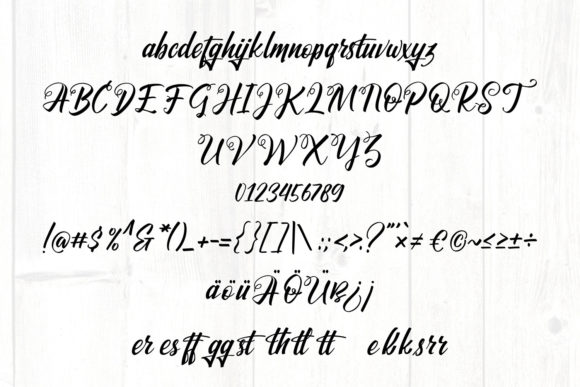 abcdefghijklmnopqrstuvwxyz
ABCDEFGHIJKLMNOPQRST
UVWXYZ
0123456789
!@#$%^&*()_+-={}[]|\:;<,>.?"'`×≠€©~≤≥±÷
äöüÄÖÜß¿¡
er es ff gg st th tt tt e b k s rr